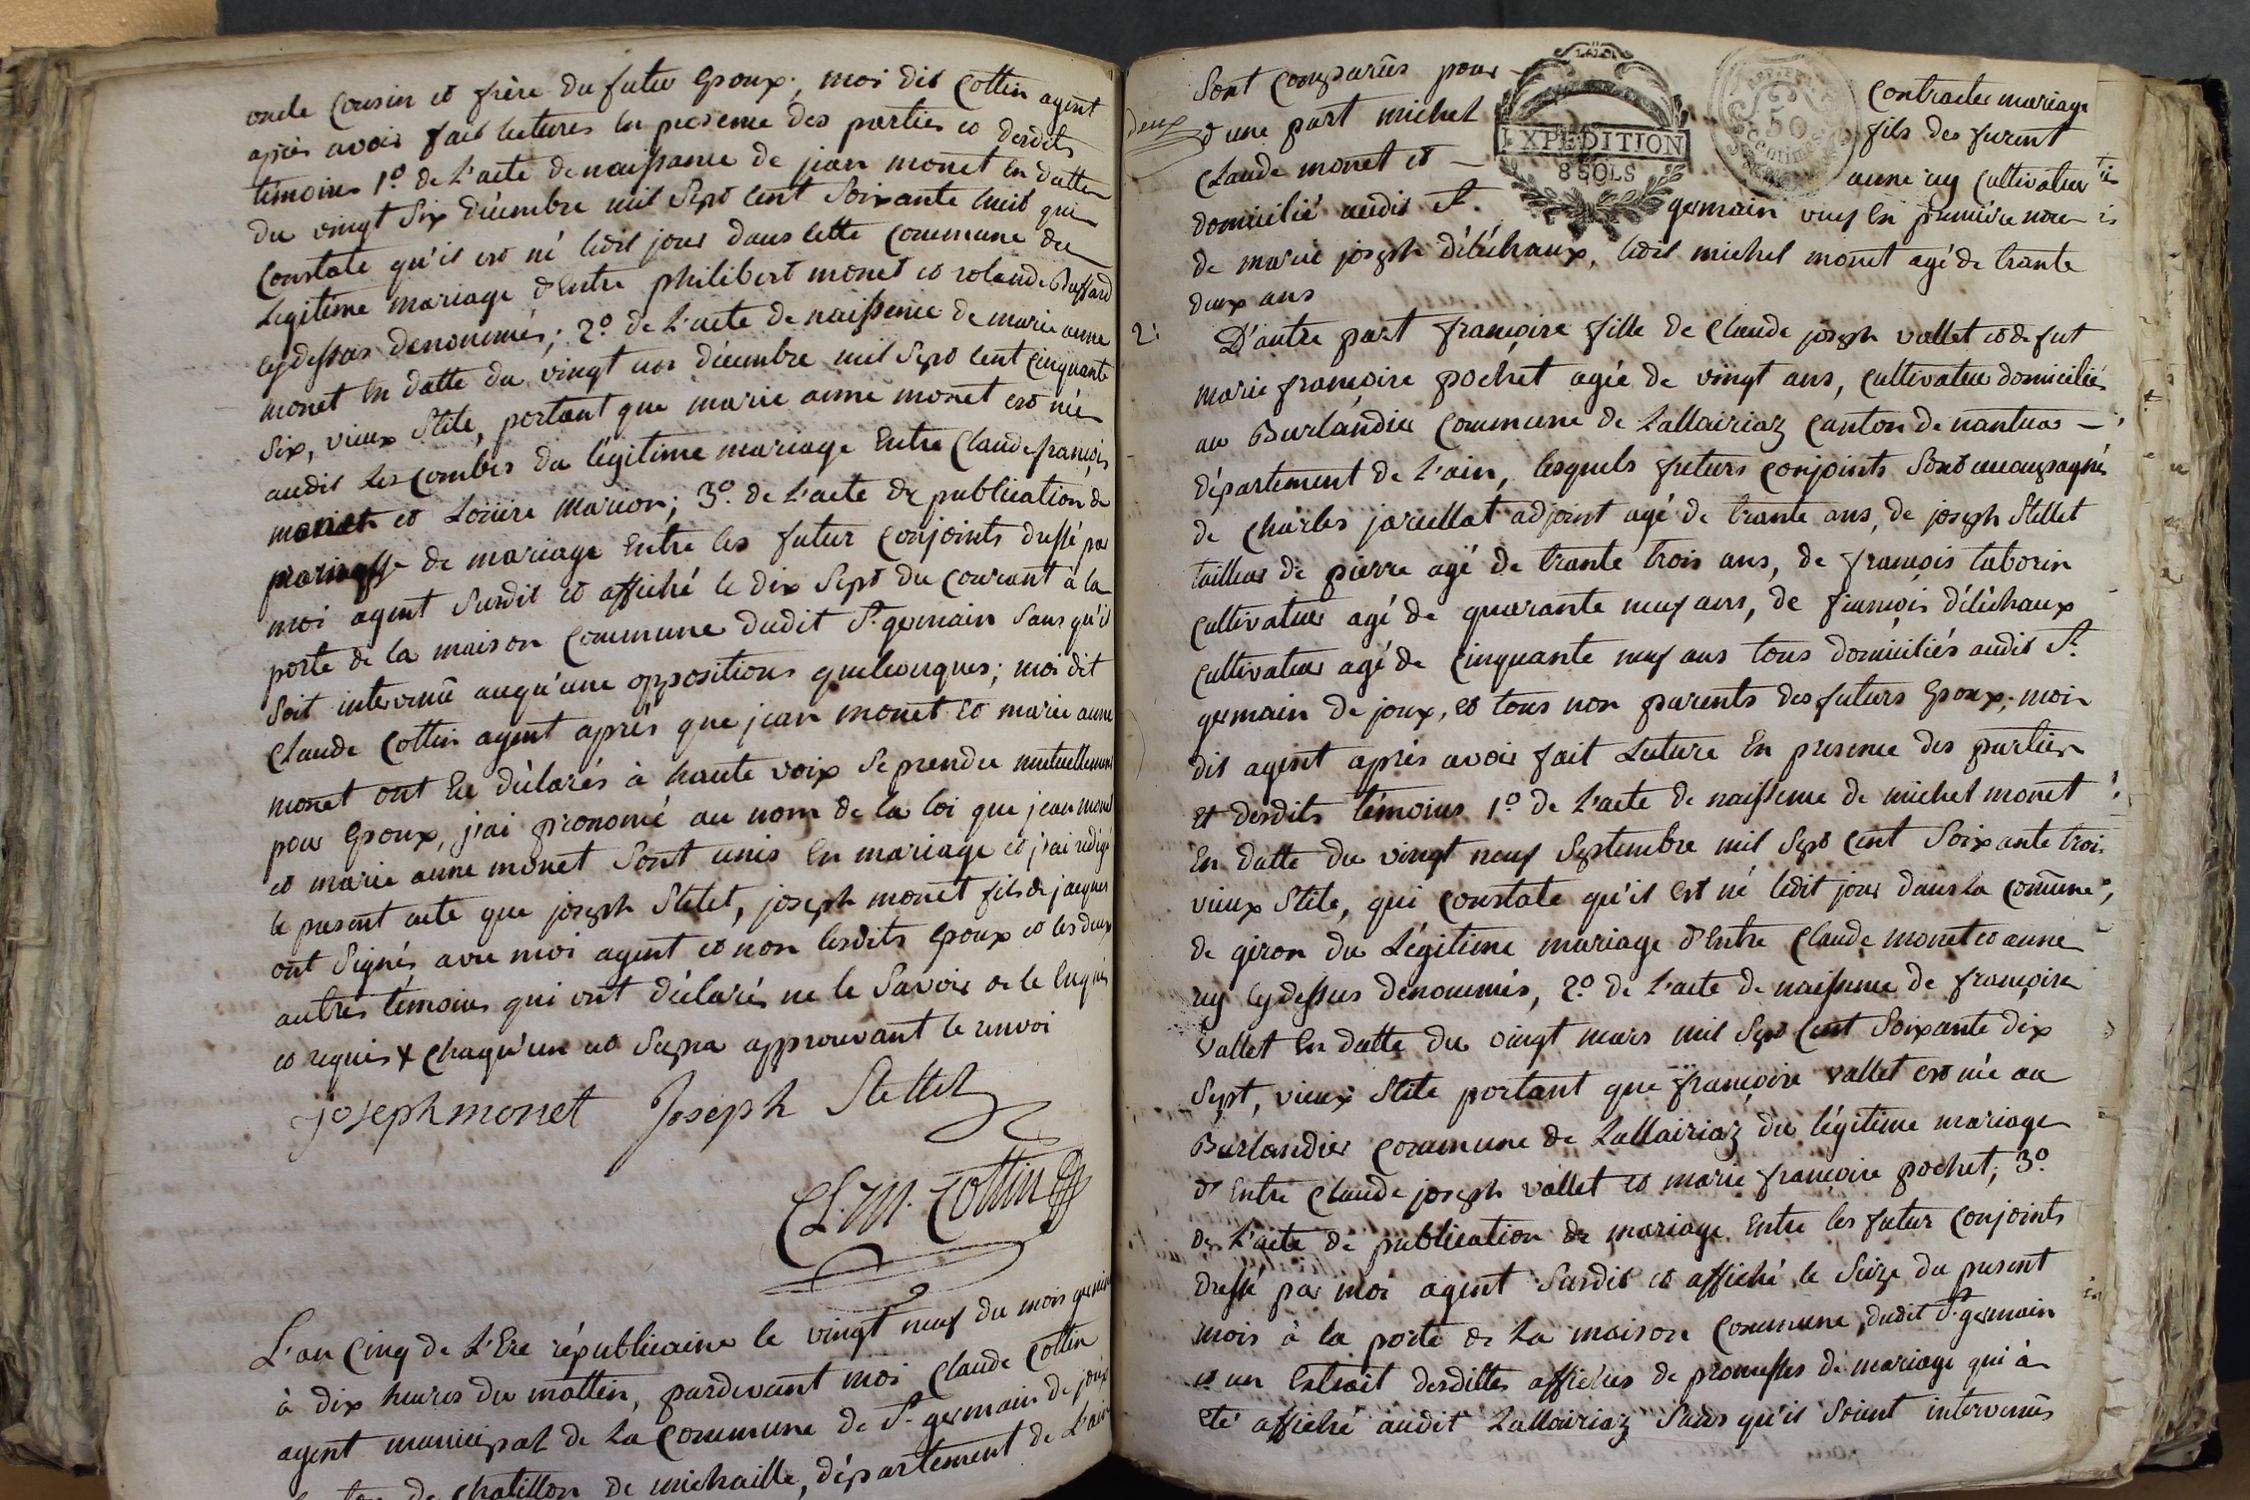 oncle cousin et frère du futur Epoux; moi dit Cottin agent
après avoir fait lectures En presence des parties et desdits
témoins 1º de L'acte de naissance de jean monet En datte
du vingt Six décembre mil Sept Cent Soixante huit qui
Constate qu'il est né ledit jour dans cette Commune du
Legitime mariage d'Entre philibert monet et rolande Bussard
cydessus denommés; 2º de L'acte de naissence de marie anne
monet En datte du vingt un décembre mil Sept Cent Cinquante
Six, vieux Stile, portant que marie anne monet est née
audit Les Combes du légitime mariage Entre Claude françois
monet et Loüise Marion; 3º. de L'acte de publication de
promesse de mariage Entre les futur Conjoints dressé par
moi agent Susdit et affiché le dix Sept du Courant à la
porte de la maison Commune dudit St. germain Sans qu'il
Soit intervenû auqu'une oppositions quelconques; moi dit
Claude Cottin agent après que jean monet et marie anne
monet ont Eu déclarés à haute voix Se prendre mutuellement
pour Epoux, j'ai prononcé au nom de la loi que jean monet
et marie anne monet Sont unis En mariage et j'ai rédigé
le present acte que joseph Stelet, joseph monet fils de jacques
ont Signés avec moi agent et non lesdits Epoux et les deux
autres témoins qui ont déclarés ne le Savoir de le Enquis
et requis + Chaqu'un ut Supra approuvant le renvoi
joseph monet Joseph Stellet
CL. M. Cottin
L'an Cinq de L'Ere républicaine le vingt neuf du mois germinal
à dix heures du mattin, pardevant moi Claude Cottin
agent municipal de La Commune de St. germain de joux
Chatillon de michaille, département de L'ain
Sont Comparûs pour Contracter mariage
deux
d'une part michel fils des furent
EXPEDITION
8 SOLS
LA LOI
50
Centimes
Claude monet et anne ruy Cultivateur
domicilié audit St. germain veuf En première noce
de marie joseph déléchaux, ledit michel monet agé de trante
deux ans
2º
D'autre part françoise fille de Claude joseph vallet et de fut
marie françoise pochet agée de vingt ans, Cultivateur domiciliée
au Burlandier Commune de Lallairiaz Canton de nantua
département de L'ain, lesquels futurs Conjoints Sont accompagnés
de Charles jarullat adjoint agé de trante ans, de joseph Stellet
tailleur de pierre agé de trante trois ans, de françois taborin
Cultivateur agé de quarante neuf ans, de françois déléchaux
Cultivateur agé de Cinquante neuf ans tous domiciliés audit St.
germain de joux, et tous non parents des futurs Epoux; moi
dit agent après avoir fait Lecture En presence des parties
Et desdits témoins 1º de L'acte de naissence de michel monet
En datte du vingt neuf Septembre mil Sept Cent Soixante trois
vieux Stile, qui Constate qu'il Est né ledit jour dans La Comune
de giron du Légitime mariage d'Entre Claude monet et anne
ruy Cydessus denommés, 2º. de L'acte de naissence de françoise
Vallet En datte du vingt mars mil Sept Cent Soixante dix
Sept, vieux Stile portant que françoise Vallet est née au
Burlandier Commune de Lallairiaz du légitime mariage
d'Entre Claude joseph vallet et marie françoise pochet; 3º.
de L'acte de publication de mariage Entre les futur Conjoints
dressé par moi agent Susdit et affiché le Seize du present
mois à la porte de La maison Commune dudit St. germain
et un Extrait desdittes affiches de promesses de mariage qui a
eté affiché audit Lallairiaz Sans qu'il Soient intervenûs